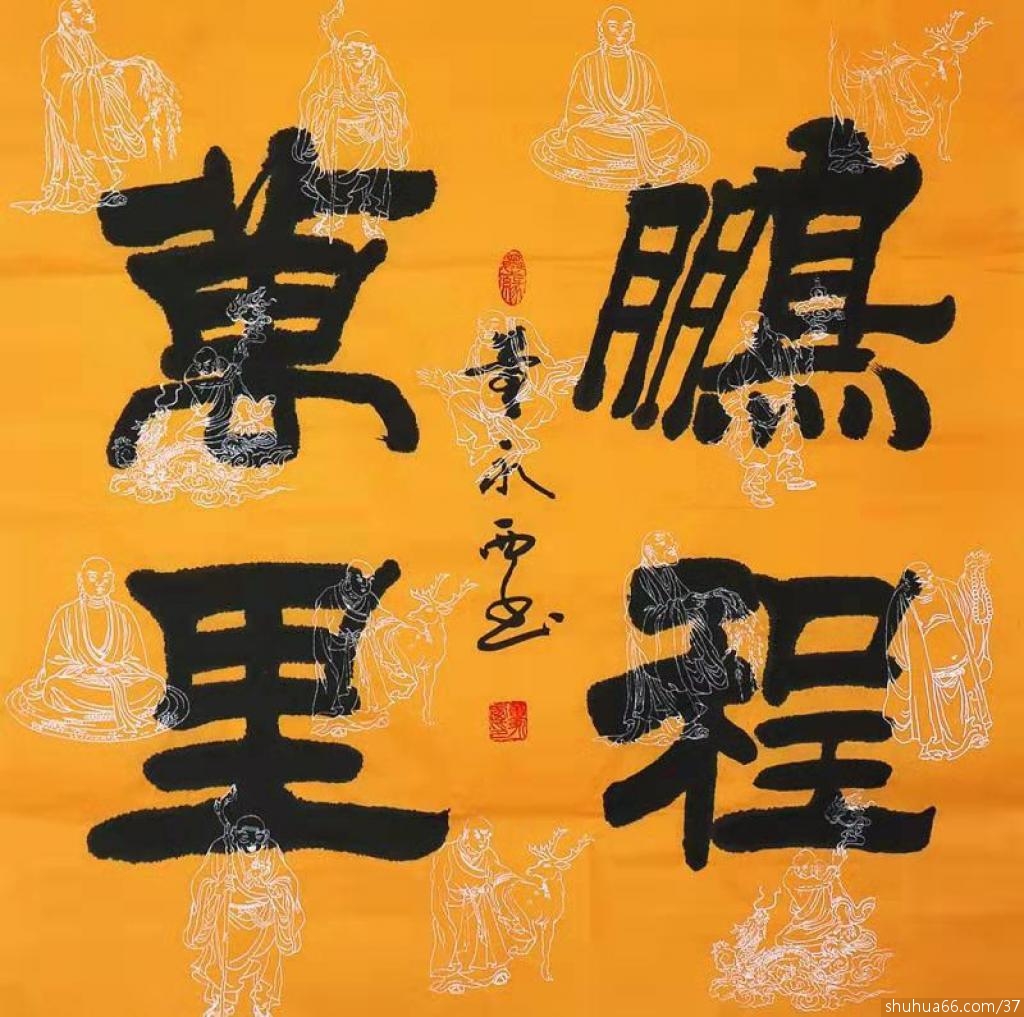 鵬程
萬里
董永西书
shuhua66.com/37